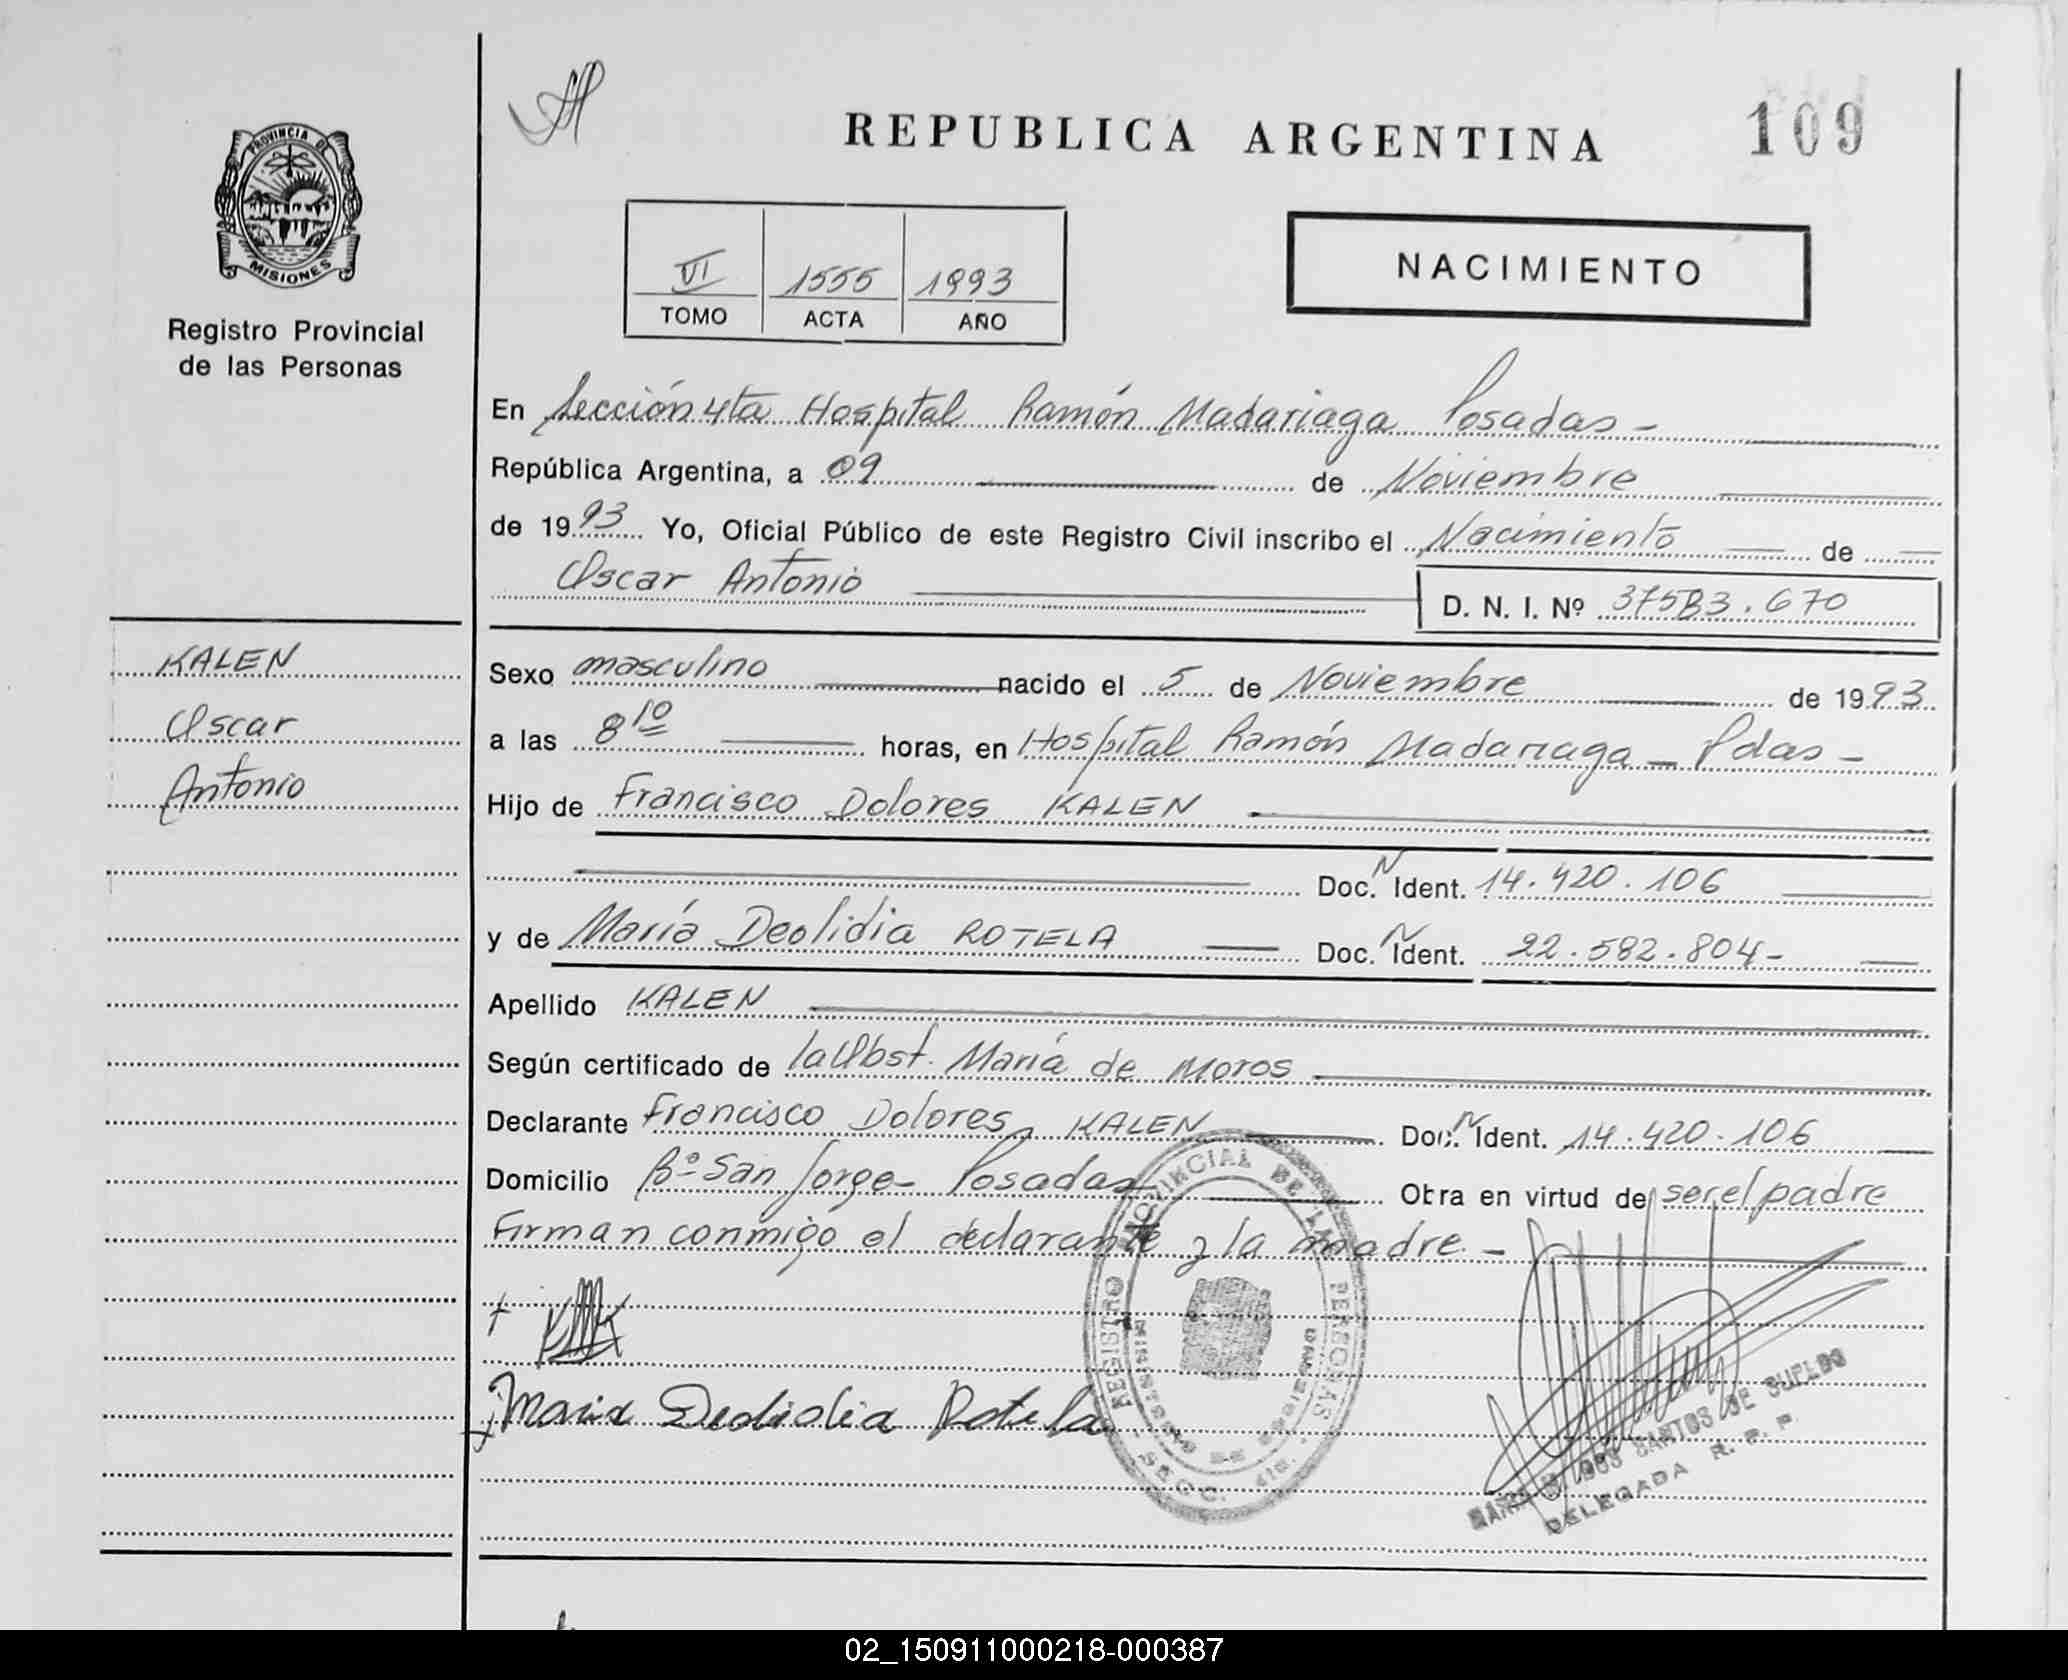 REPUBLICA ARGENTINA
109
PROVINCIA DE
MISIONES
Registro Provincial
de las Personas
VI 1555 1993
TOMO ACTA AÑO
NACIMIENTO
En Sección 4ta Hospital Ramón Madariaga Posadas -
República Argentina, a 09 de Noviembre
de 1993 Yo, Oficial Público de este Registro Civil inscribo el Nacimiento de
Oscar Antonio
D. N. I. Nº 37583.670
KALEN
Oscar
Antonio
Sexo masculino nacido el 5 de Noviembre de 1993
a las 8 10 horas, en Hospital Ramón Madariaga - Pdas -
Hijo de Francisco Dolores KALEN
Doc. N Ident. 14.420.106
y de María Deolidia ROTELA Doc. N Ident. 22.582.804-
Apellido KALEN
Según certificado de la Obst. María de Moros
Declarante Francisco Dolores KALEN Doc. N Ident. 14.420.106
Domicilio Bº San Jorge - Posadas Obra en virtud de ser el padre
Firman conmigo el declarante y la madre. -
Maria Deolidia Rotela
REGISTRO PROVINCIAL DE LAS PERSONAS
MISIONES
SECC.
DOS SANTOS DE SUELDO
DELEGADA R. P. P.
02_150911000218-000387